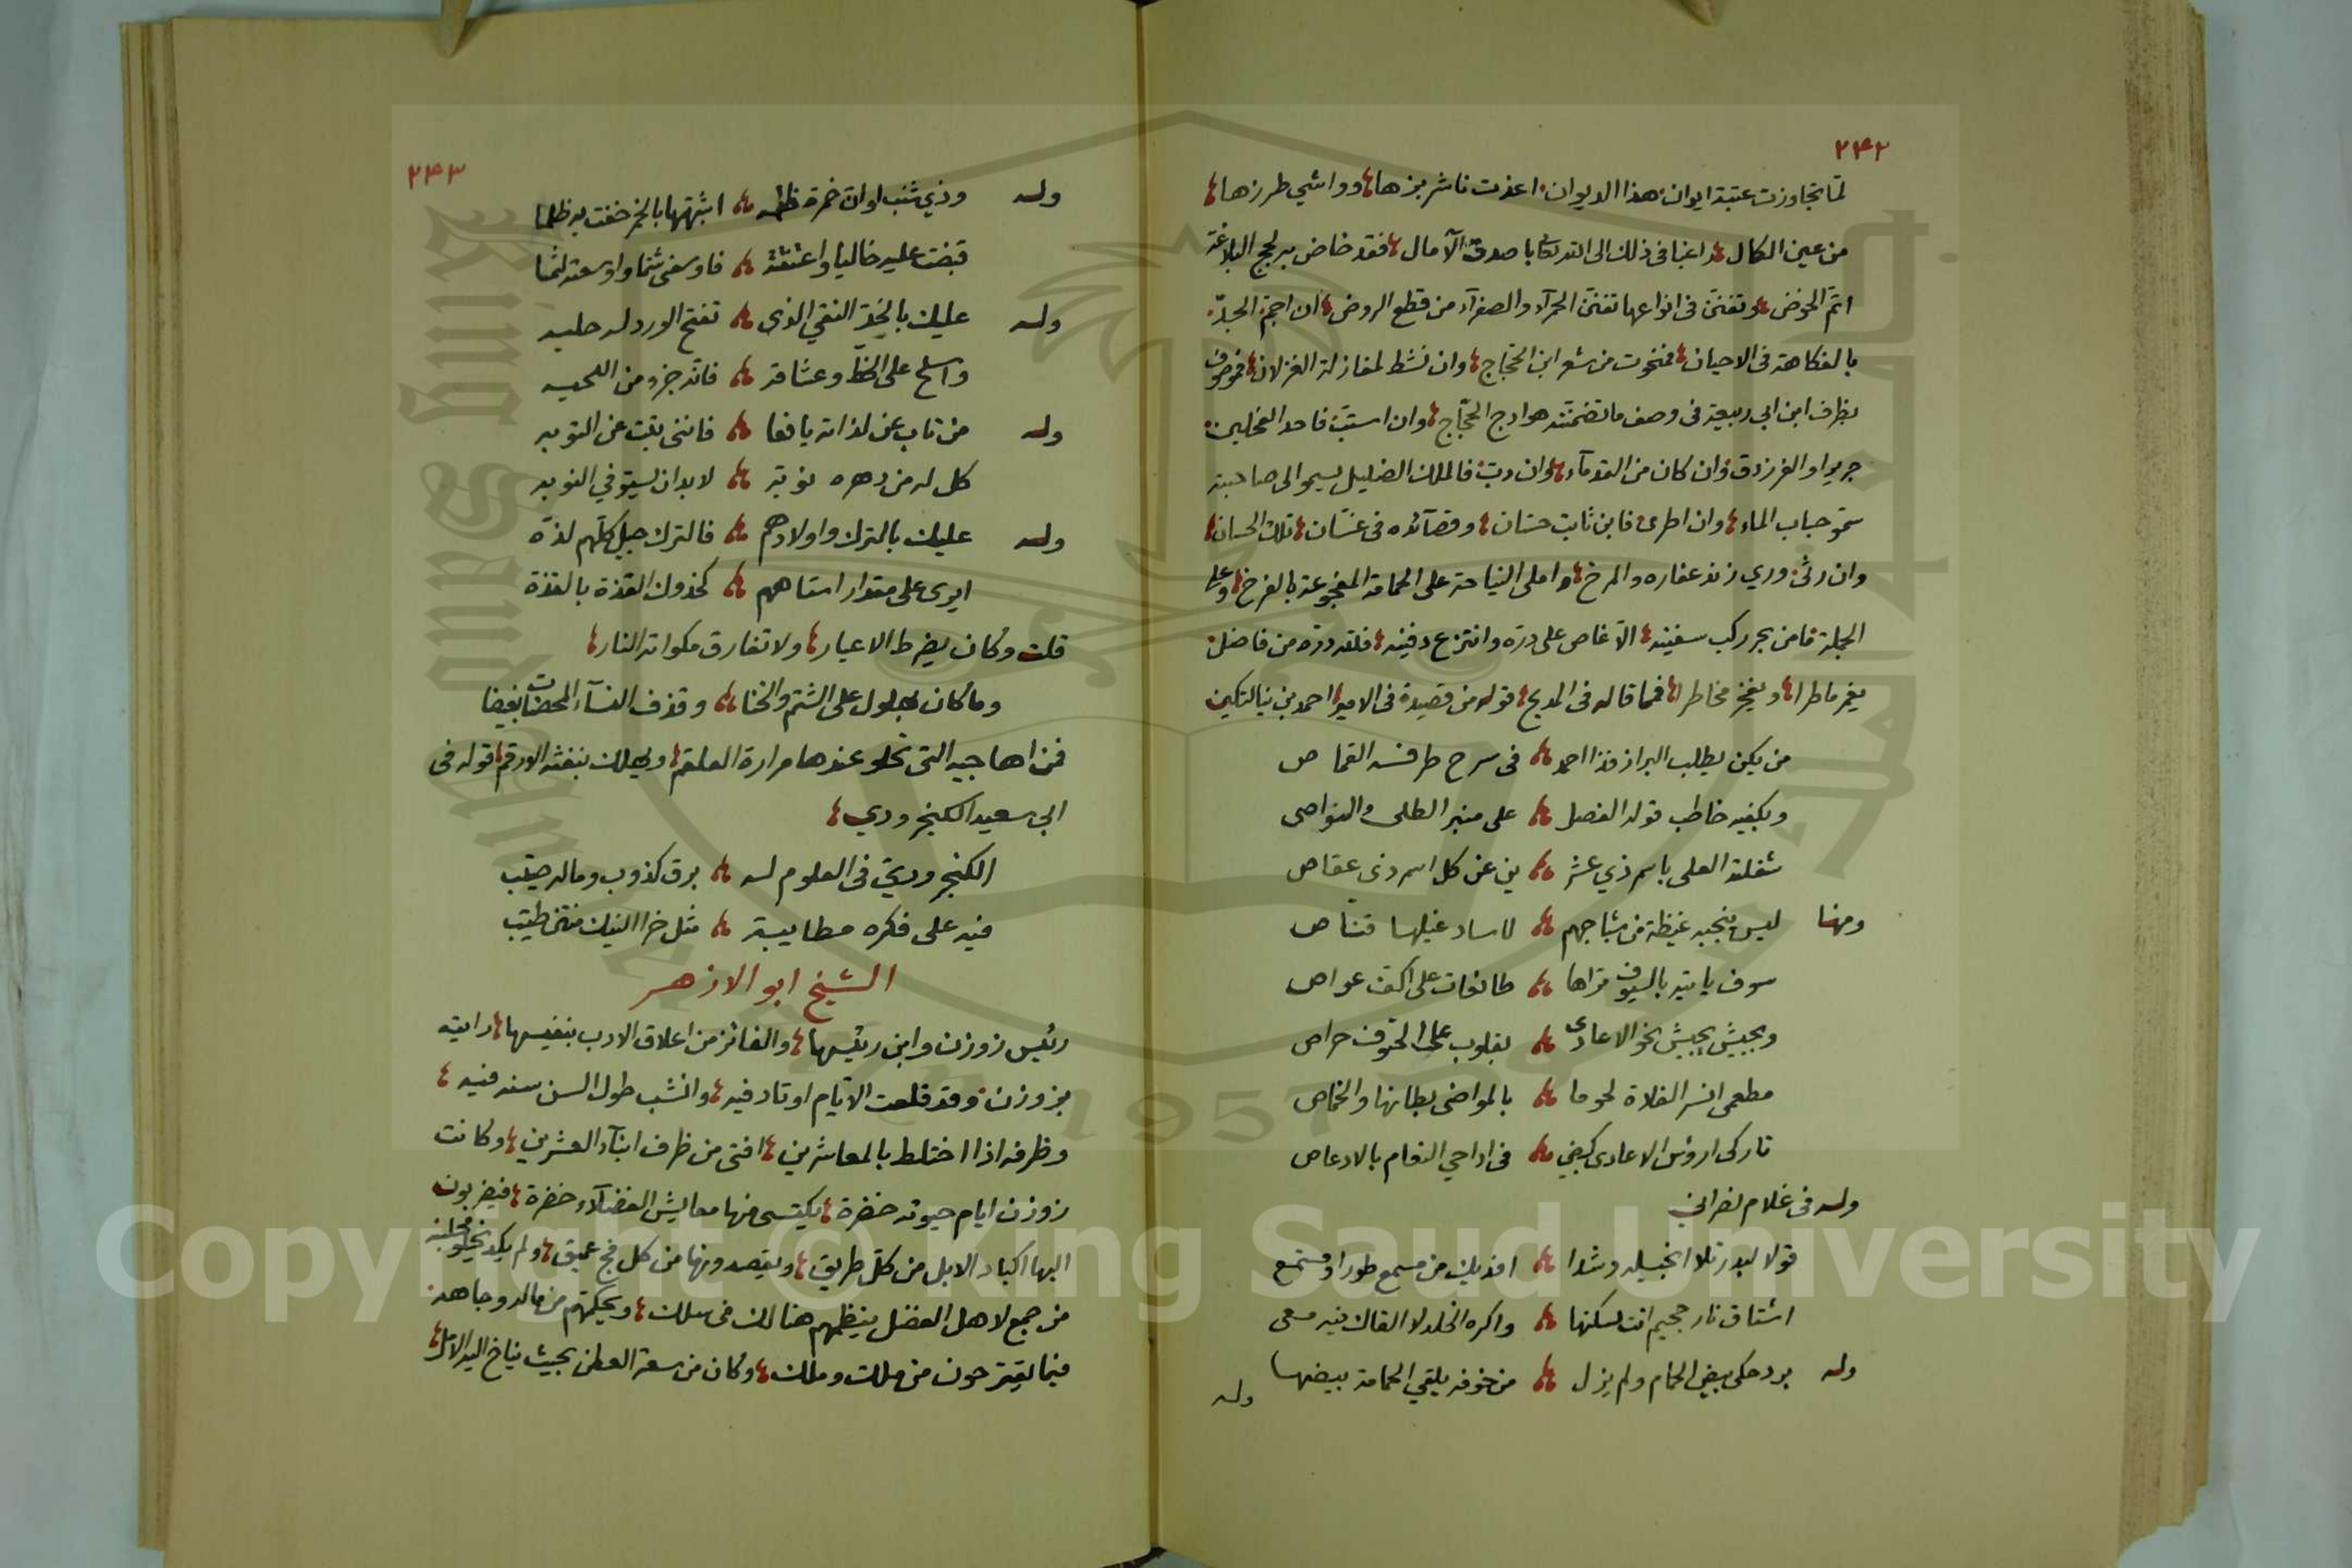 ٢٤٢
لما تجاوزت عتبة ايوان هذا الديوان اعذت ناشر بزها وواشي طرزها
من عين الكمال راغبا في ذلك الى الله تعالى باصدق الآمال فقد خاض بحر لجج البلاغة
اتم الخوض وتفنن في انواعها تفنن الحمرآء والصفرآء من قطع الروض ان اجم الجد
بالفكاهة في الاحيان فمنحوت من شعر ابن الحجاج وان نشط لمغازلة الغزلان فموصوف
بظرف ابن ابي ربيعة في وصف ما تضمنته هوادج الحجاج وان استب فاحد الفحلين
جرير او الفرزدق وان كان من القدمآء وان دب فالملك الضليل يسمو الى صاحبته
سمو حباب الماء وان اطرى فابن ثابت حسان وقصآئده في غسان تلك الحسان
وان رثى وري زند عفاره والمرخ واملى النياحة على الحمامة المفجوعة بالفرخ وعلى
الجملة فامن بحر ركب سفينه الا غاص على دره وانتزع دفينه فلله دره من فاضل
يغر ماطرا ويفخر مخاطرا فما قاله في المديح قوله من قصيدة في الامير احمد بن ينالتكين
من يكن يطلب البراز فذا احمد في سرح طرفه القماص
ويكفيه خاطب قوله الفصل على منبر الطلى والنواصي
شغلته العلى باسم ذي عشر ين عن كل اسم ذي عقاص
ومنها ليس ينجيه غيظة من مشاجهم لاساد غيلها قناص
سوف ياتيه بالسيوف تراها طائفات على اكف عواص
وبجيش يجيش نحو الاعادي بقلوب على الحتوف حراص
مطعمي انسر الفلاة لحوما بالمواضي بطانها والخماص
تاركي ارؤس الاعادي كبيض في اداحي النعام بالادعاص
وله في غلام نصراني
قولا لبدر تلا انجيله وشدا افديك من مسمع طورا ومستمع
اشتاق نار جحيم انت تسكنها واكره الخلد لا القاك فيه معي
وله برد حكى بيض الحمام ولم يزل من خوفه يلقي الحمامة بيضها
وله
٢٤٣
وله وذي شنب لو ان خمرة ظلمه اشبهتها بالخمر خفت به ظلما
قبضت عليه خاليا واعتنقته فاوسعني شتما واوسعته لثما
وله عليك بالخد النقي الذي تفتح الورد له حليه
واسلح على الخط وعشاقه فانه جزء من اللحيه
وله من تاب عن لذاته يافعا فانني تبت عن التوبه
كل له من دهره نوبة لابد ان يستوفي النوبه
وله عليك بالترك واولادهم فالترك جيل كلهم لذه
ايرى على مقدار استاهم كحذوك القذة بالقذة
قلت وكان يضرط الاعيار ولا تفارق مكواته النار
وما كان بهلول على الشتم والخنا وقذف النسآء المحصنات بغيضا
فمن اهاجيه التي تحلو عندها مرارة العلقم ويهلك بنفثه الارقم قوله في
ابي سعيد الكنجرودي
الكنجرودي في العلوم له برق كذوب وماله صيب
فيه على فكره مطايبة مثل خرا الفيك منتن طيب
الشيخ ابو الازهر
رئيس زوزن وابن رئيسها والفائز من اعلاق الادب بنفيسها رايته
بزوزن وقد قلعت الايام اوتاد فيه وانشب طول السن سنه فيه
وظرفه اذا اختلط بالمعاشرين افتى من ظرف ابنآء العشرين وكانت
زوزن ايام حيوته خضرة يكتسى منها معايش الفضلآء خضرة فيضربون
اليها اكباد الابل من كل طريق ويقصدونها من كل فج عميق ولم يكد يخلو مجلسه
من جمع لاهل الفضل ينظمهم هنالك في سلك ويحكمهم من ماله وجاهه
فيما يقترحون من ملك وملك وكان من سعة العطن بحيث يناخ اليه الابل
Copyright © King Saud University
King Saud University
1957